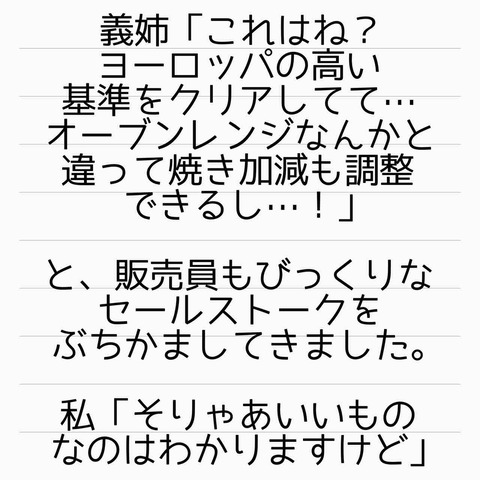 義姉「これはね？
ヨーロッパの高い
基準をクリアしてて…
オーブンレンジなんかと
違って焼き加減も調整
できるし…！」
と、販売員もびっくりな
セールストークを
ぶちかましてきました。
私「そりゃあいいもの
なのはわかりますけど」